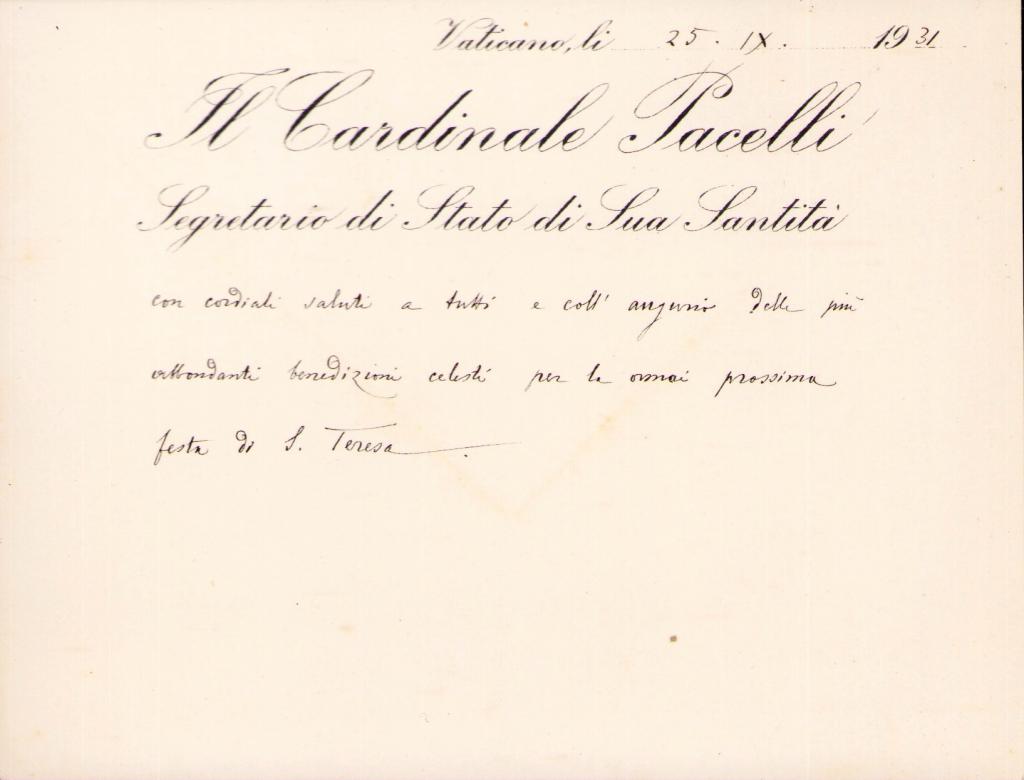 Vaticano, li 25. IX. 1931
Il Cardinale Pacelli
Segretario di Stato di Sua Santità
con cordiali saluti a tutti e coll' augurio delle più
abbondanti benedizioni celesti per la ormai prossima
festa di S. Teresa